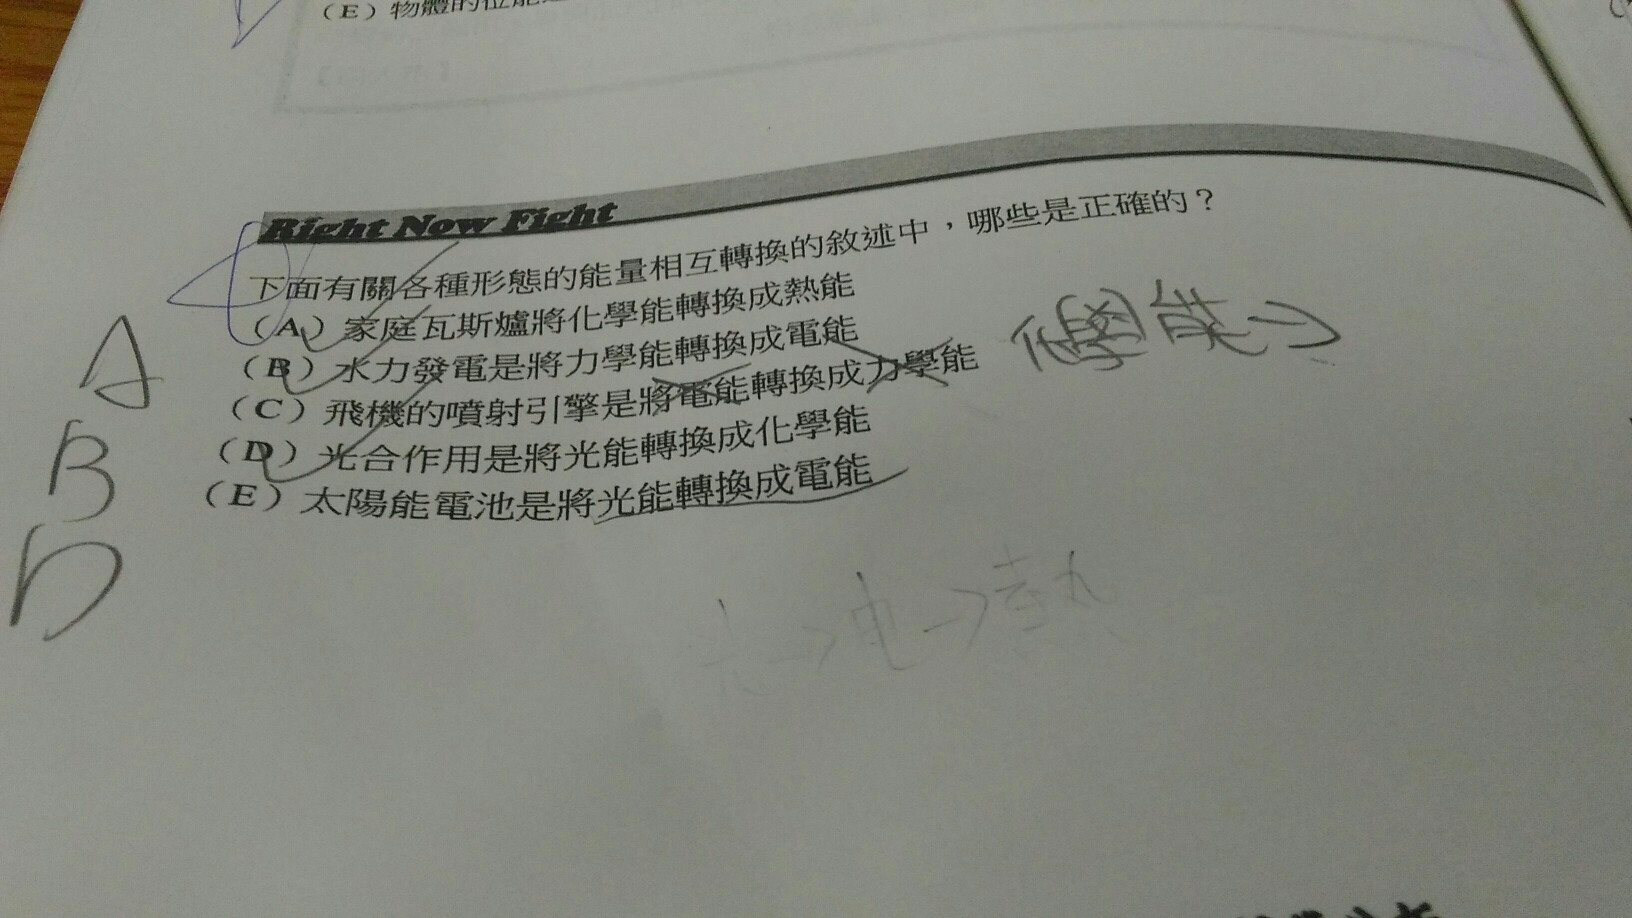 (E) 物體的位能
Right Now Fight
下面有關各種形態的能量相互轉換的敘述中，哪些是正確的？
(A) 家庭瓦斯爐將化學能轉換成熱能
(B) 水力發電是將力學能轉換成電能
(C) 飛機的噴射引擎是將電能轉換成力學能
化學能→
(D) 光合作用是將光能轉換成化學能
(E) 太陽能電池是將光能轉換成電能
A
B
D
光→电→熱